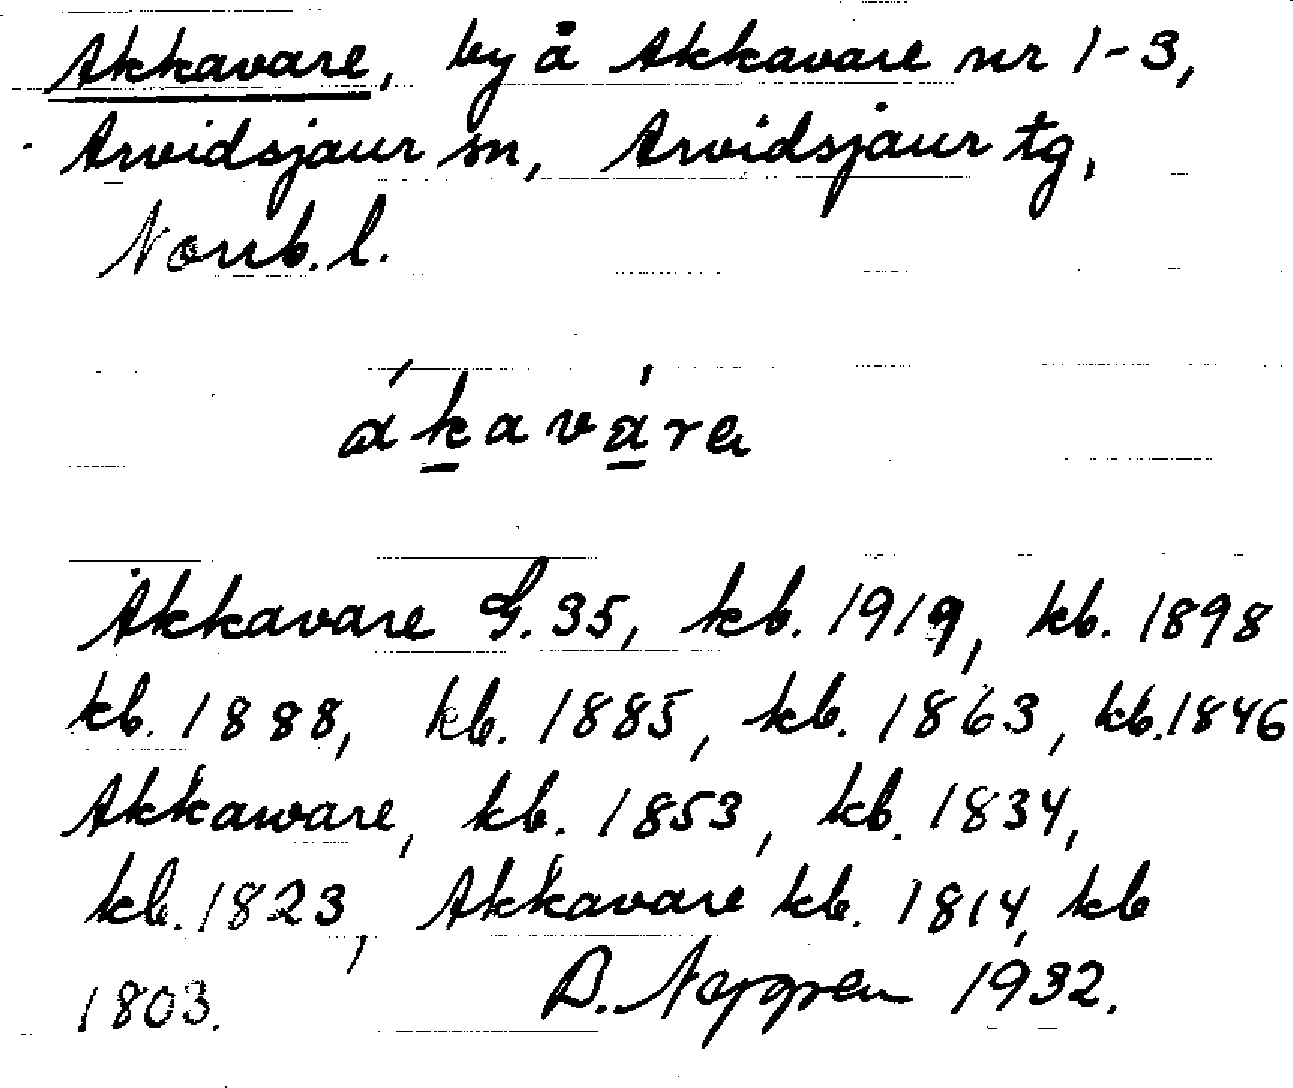 Akkavare, by å Akkavare nr 1-3,
Arvidsjaur sn, Arvidsjaur tg,
Norrb. l.
ákavárɛ
Akkavare G. 35, kb. 1919, kb. 1898
kb. 1888, kb. 1885, kb. 1863, kb. 1846
Akkaware, kb. 1853, kb. 1834,
kb. 1823, Akkavare kb. 1814, kb
1803. D. Nygren 1932.